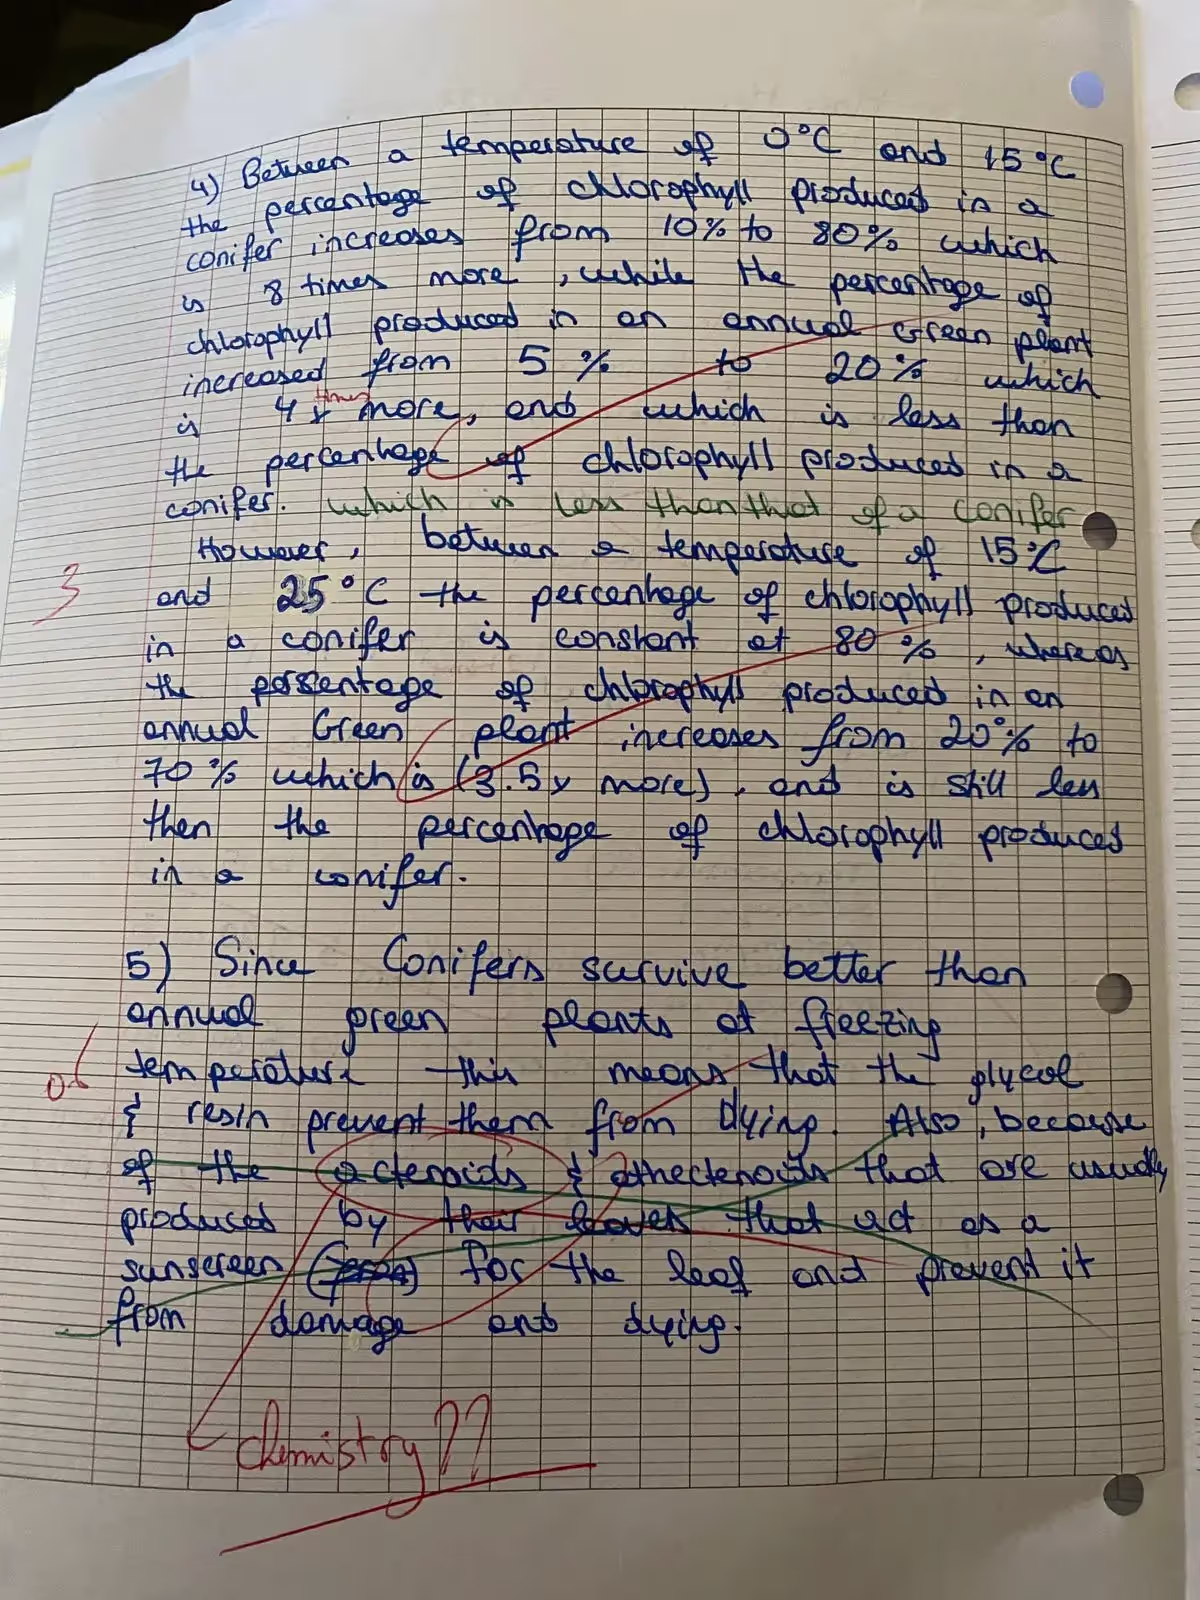 4) Between a temperature of 0°C and 15°C
the percentage of chlorophyll produced in a
conifer increases from 10% to 80% which
is 8 times more, while the percentage of
chlorophyll produced in an annual Green plant
increased from 5% to 20% which
times
is 4x more, and which is less than
the percentage of chlorophyll produced in a
conifer. which is less than that of a conifer
However, between a temperature of 15°C
3
and 25°C the percentage of chlorophyll produced
in a conifer is constant at 80%, whereas
the persentage of chlorophyll produced in an
annual Green plant increases from 20% to
70% which is (3.5x more), and is still less
then the percentage of chlorophyll produced
in a conifer.
5) Since Conifers survive better than
annual green plants at freezing
temperature this means that the glycol
& resin prevent them from dying. Also, because
of the actenoids & that are usually
produced by their leaves that act as a
sunscreen for the leaf and prevent it
from damage and dying.
chemistry??